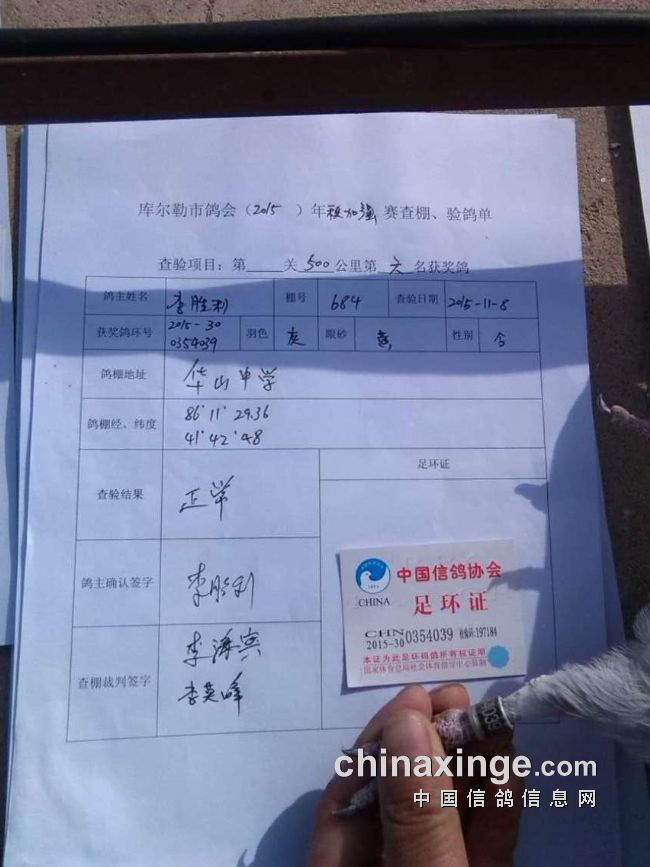 库尔勒市鸽会（2015 ）年秋加强赛查棚、验鸽单
查验项目：第____关 500公里第 六 名获奖鸽
鸽主姓名 李胜利 棚号 684 查验日期 2015-11-8
获奖鸽环号 2015-30 0354039 羽色 灰 眼砂 黄 性别 合
鸽棚地址 华山中学
鸽棚经、纬度 86°11′29.36
41°42′48
足环证
查验结果 正常
鸽主确认签字 李胜利
查棚裁判签字 李海宾
李英峰
中国信鸽协会
CHINA 足环证
CHN
2015-30 0354039 校验码:197184
本证为此足环码鸽所有权证明
国家体育总局社会体育指导中心监制
chinaxinge.com
中国信鸽信息网